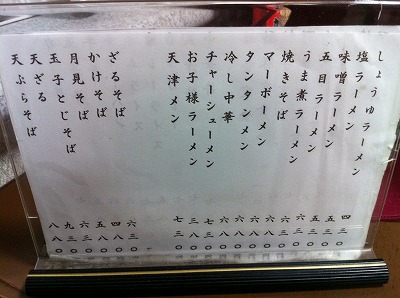 しょうゆラーメン 四三〇
塩ラーメン
味噌ラーメン
五目ラーメン 六三〇
うま煮ラーメン 六三〇
焼きそば
マーボーメン 六八〇
タンタンメン 六八〇
冷し中華 六八〇
チャーシューメン 七三〇
お子様ラーメン 三八〇
天津メン 七三〇
ざるそば 六三〇
かけそば 四八〇
月見そば 五八〇
玉子とじそば 六三〇
天ざる 九三〇
天ぷらそば 八八〇